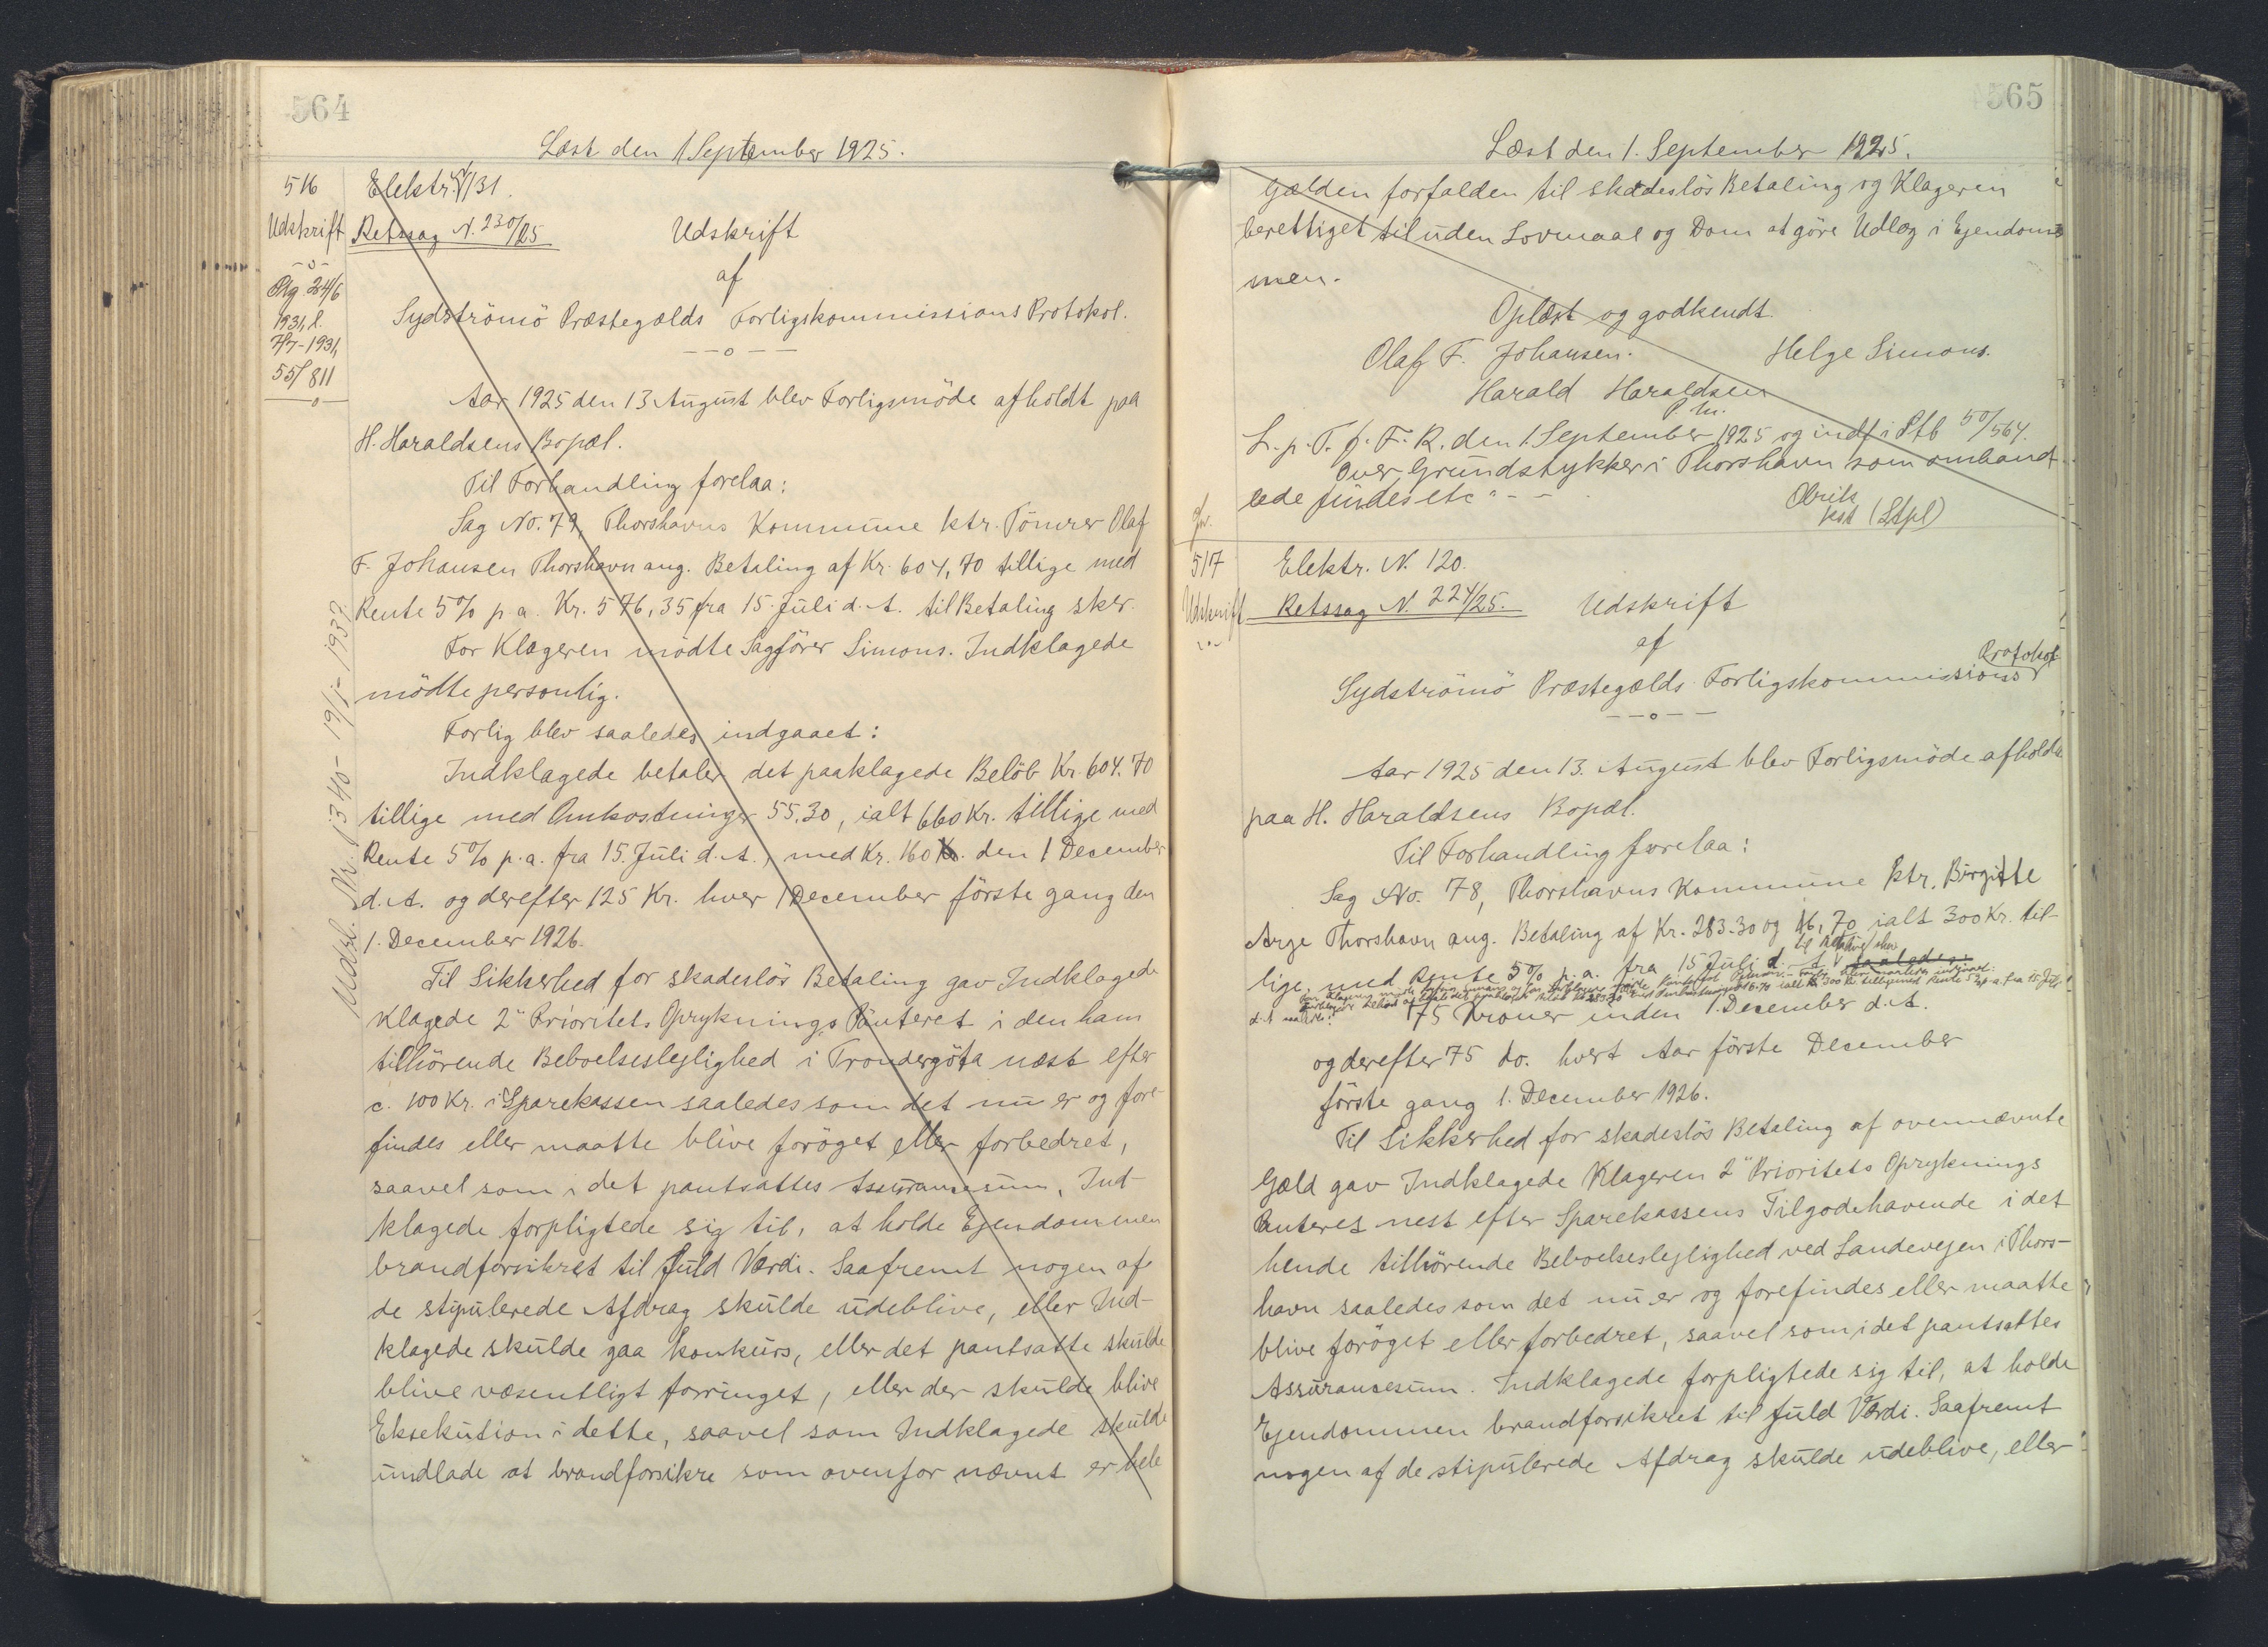 564
Læst den 1 September 1925.
516
Udskrift
Elektr. 131.
Retssag N. 230/25
Udskrift
af
Sydströmö Præstegælds Forligskommissions Protokol.
Aar 1925 den 13 August blev Forligsmöde afholdt paa
H. Haraldsens Bopæl.
Til Forhandling forelaa:
Sag No. 79, Thorshavns Kommune ktr. Tömrer Olaf
F. Johansen Thorshavn ang. Betaling af Kr. 604,70 tillige med
Rente 5% p.a. Kr. 576,35 fra 15. Juli d. A. til Betaling sker.
For Klageren mödte Sagförer Simons. Indklagede
mödte personlig.
Forlig blev saaledes indgaaet:
Indklagede betaler det paaklagede Belöb Kr. 604.70
tillige med Omkostninger 55.30, ialt 660 Kr. tillige med
Rente 5% p.a. fra 15. Juli d. A., med Kr. 160 Kr. den 1 December
d. A. og derefter 125 Kr. hver 1 December förste gang den
1. December 1926.
Til Sikkerhed for skadeslös Betaling gav Indklagede
Klagede 2" Prioritets Oprykninge Panteret i den ham
tilhörende Beboelseslejlighed i Trondergöta næst efter
c. 100 Kr. i Sparekassen saaledes som det nu er og fore-
findes eller maatte blive foröget eller forbedret,
saavel som i det pantsattes Assurancesum. Ind-
klagede forpligtede sig til, at holde Ejendommen
brandforsikret til fuld Værdi. Saafremt nogen af
de stipulerede Afdrag skulde udeblive, eller Ind-
klagede skulde gaa konkurs, eller det pantsatte skulde
blive væsentligt forringet, eller der skulde blive
Eksekution i dette, saavel som Indklagede skulde
undlade at brandforsikre som ovenfor nævnt er hele
Udsl. Nr. 1340 - 19/1 - 1932
565
Læst den 1. September 1925.
Gælden forfalden til skadeslös Betaling og Klageren
berettiget til uden Lovmaal og Dom at göre Udlæg i Ejendoms
men.
Oplæst og godkendt.
Olaf F. Johansen. Helge Simons.
Harald Haraldsen
P. M.
L. p. T. f. F. R. den 1. September 1925 og indf i Ptb 50/564.
Over Grundstykker i Thorshavn som omhand-
lede findes etc
(Stpl)
517
Udskrift
Elektr. N. 120.
Retssag N. 224/25.
Udskrift
af
Sydströmö Præstegælds Forligskommissions Protokol
Aar 1925 den 13. August blev Forligsmöde afholdt
paa H. Haraldsens Bopæl.
Til Forhandling forelaa:
Sag No. 78, Thorshavns Kommune ktr. Birgitte
Arge Thorshavn ang. Betaling af Kr. 283.30 og 16,70 ialt 300 Kr. til-
lige med Rente 5% p.a. fra 15 Juli d. A. til Betaling sker saaledes:
75 Kroner inden 1. December d. A.
og derefter 75 do. hvert Aar förste December
förste gang 1. December 1926.
Til Sikkerhed for skadeslös Betaling af ovennævnte
Gæld gav Indklagede Klageren 2" Prioritets Opryknings
Panteret nest efter Sparekassens Tilgodehavende i det
hende tilhörende Beboelseslejlighed ved Landevejen i Thors-
havn saaledes som det nu er og forefindes eller maatte
blive foröget eller forbedret, saavel som i det pantsattes
Assurancesum. Indklagede forpligtede sig til, at holde
Ejendommen brandforsikret til fuld Værdi. Saafremt
nogen af de stipulerede Afdrag skulde udeblive, eller